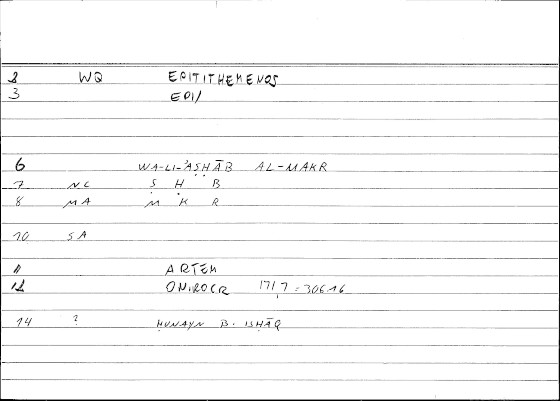 2 WQ EPITITHEMENOS
3 EPI/
6 WA-LI-ʾAṢḤĀB AL-MAKR
7 NC Ṣ Ḥ B
8 MA M K R
10 SA
11 ARTEM
12 ONIROCR 171,7 = 306 16
14 ? ḤUNAYN B. ISḤĀQ